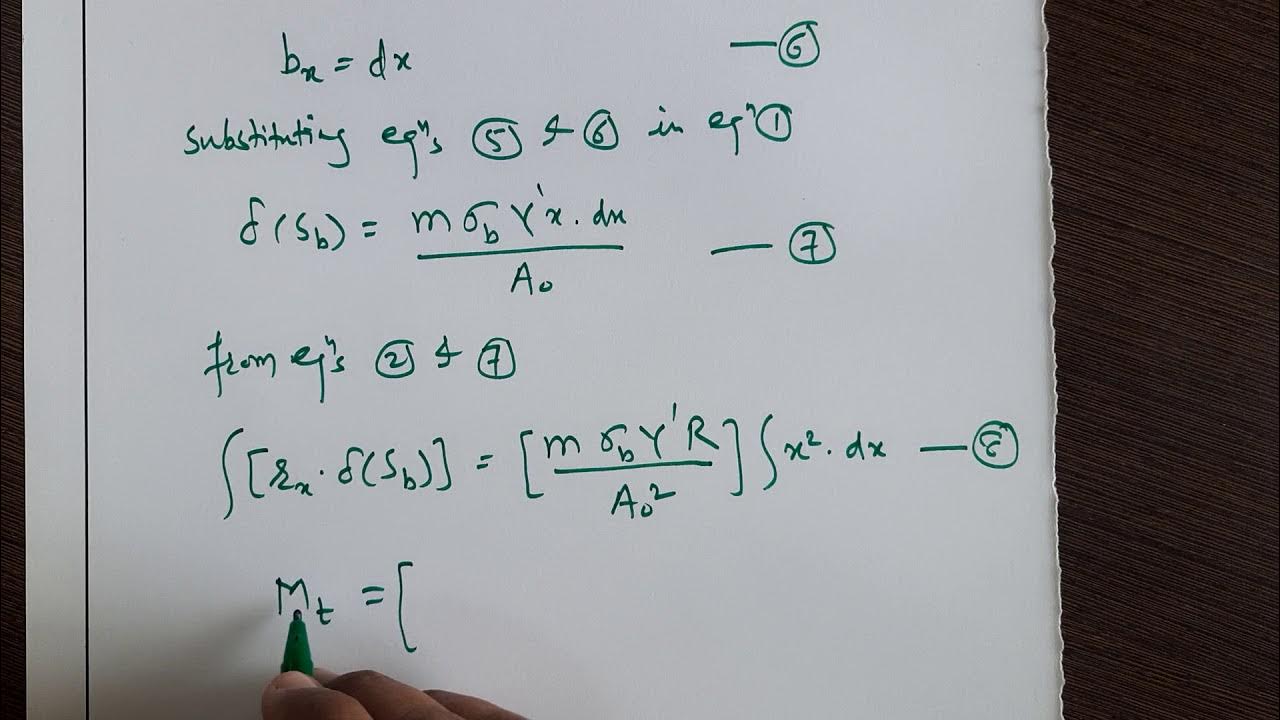 bₓ = dx —⑥
substituting eqⁿs ⑤ & ⑥ in eqⁿ ①
δ(S_b) = m σ_b Y'x . dx / A₀ —⑦
from eqⁿs ② & ⑦
∫[rₓ . δ(S_b)] = [m σ_b Y'R / A₀²] ∫x² . dx —⑧
M_t = [